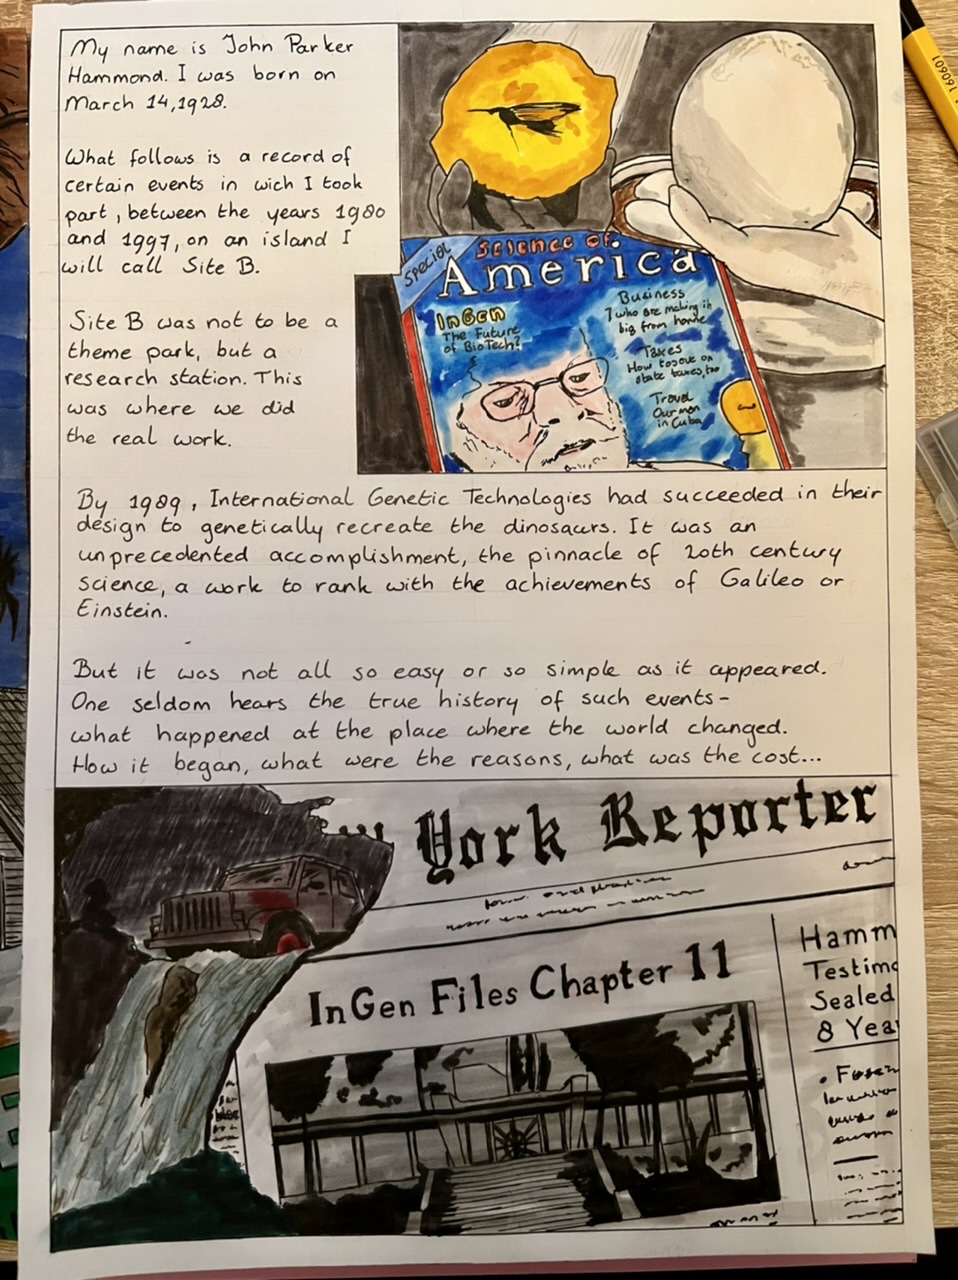 My name is John Parker
Hammond. I was born on
March 14, 1928.
What follows is a record of
certain events in wich I took
part, between the years 1980
and 1997, on an island I
will call Site B.
Site B was not to be a
theme park, but a
research station. This
was where we did
the real work.
SPECIAL
Science of
America
InGen
The Future
of BioTech?
Business
7 who are making it
big from home
Taxes
How to save on
state taxes, too
Travel
Our men
in Cuba
By 1989, International Genetic Technologies had succeeded in their
design to genetically recreate the dinosaurs. It was an
unprecedented accomplishment, the pinnacle of 20th century
science, a work to rank with the achievements of Galileo or
Einstein.
But it was not all so easy or so simple as it appeared.
One seldom hears the true history of such events-
what happened at the place where the world changed.
How it began, what were the reasons, what was the cost...
York Reporter
InGen Files Chapter 11
Hamm
Testimo
Sealed
8 Yea
160601